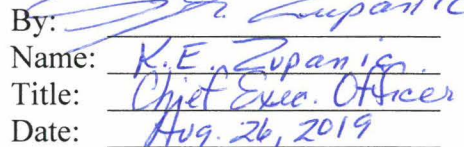 By: Zupanic
Name: K.E. Zupanic
Title: Chief Exec. Officer
Date: Aug. 26, 2019